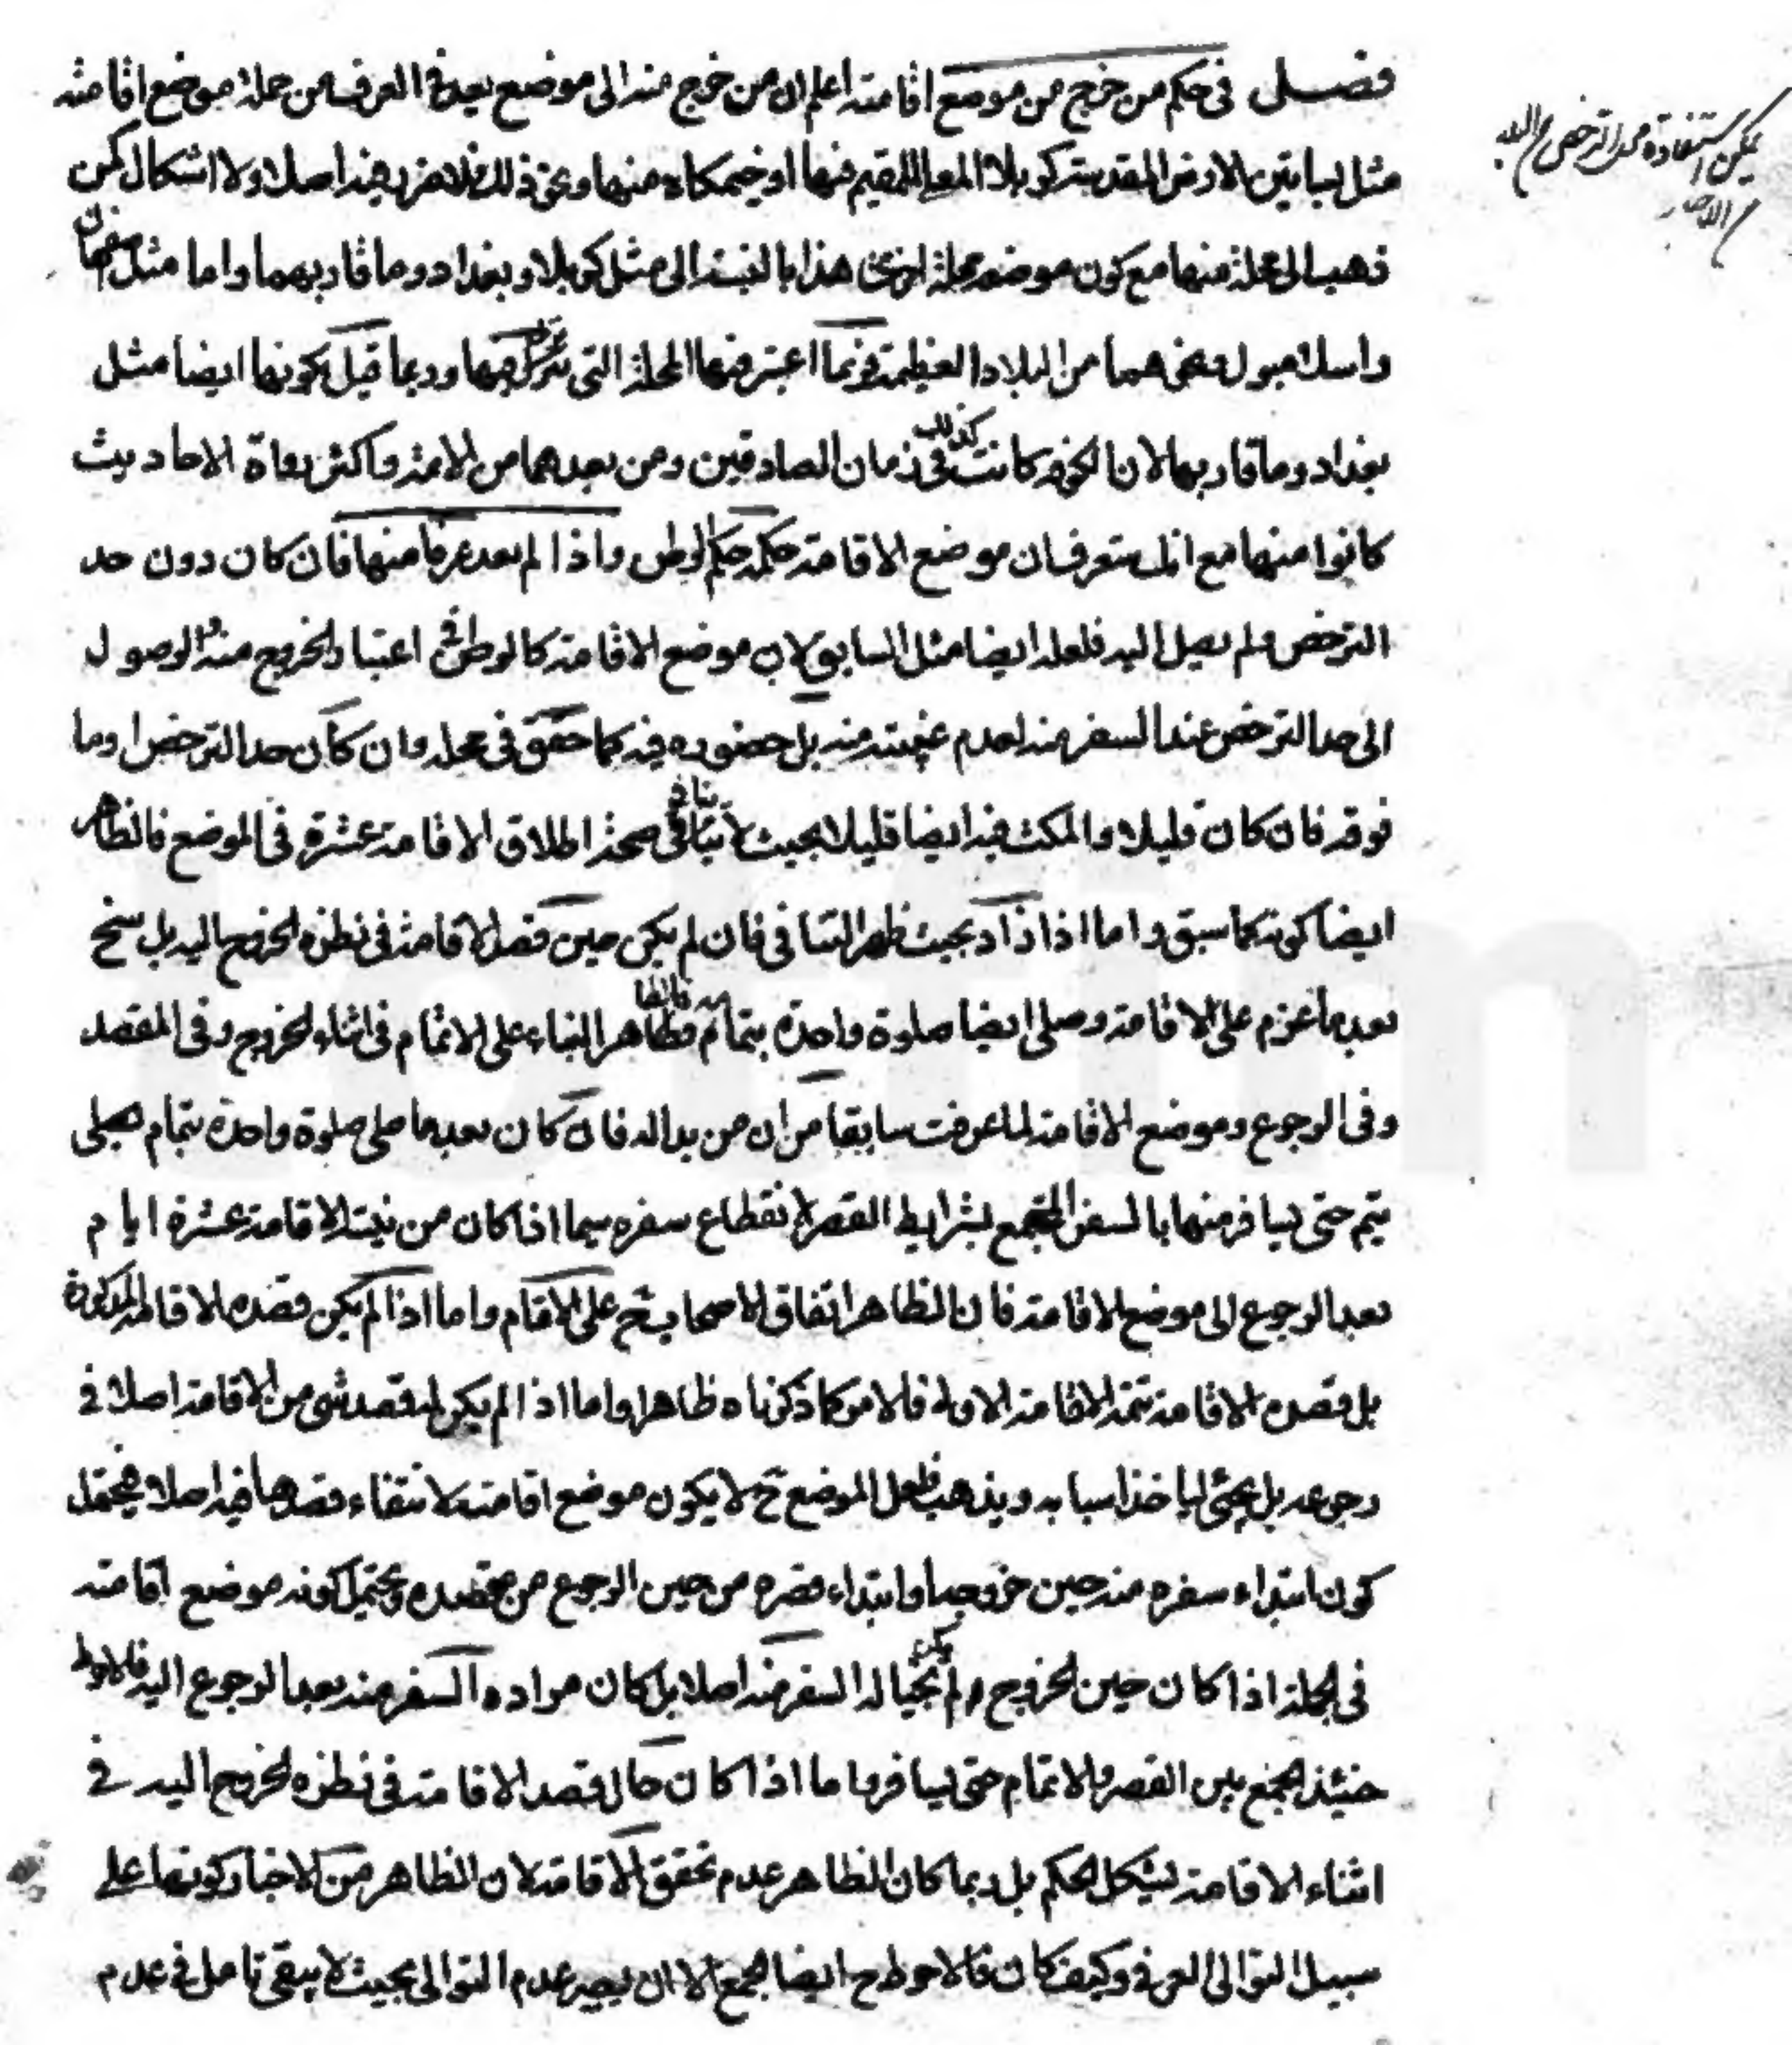 فصل في حكم من خرج من موضع اقامته اعلم ان من خرج منه الى موضع يعد في العرف من جملة موضع اقامته
مثل بساتين الارض المقدسة كربلا المعلا للمقيم فيها او خيمكاه منها ونحو ذلك فلا ضرر فيه اصلا ولا اشكال كمن
ذهب الى محلة منها مع كون موضعه محلة اخرى هذا بالنسبة الى مثل كربلا وبغداد وما قاربهما واما مثل اصفهان
واسلامبول ونحوهما من البلاد العظيمة فربما اعتبر فيها المحلة التي نزل فيها وربما قيل بكونها ايضا مثل
بغداد وما قاربها لان الكوفة كانت كذلك في زمان الصادقين ومن بعدهما من الائمة واكثر رواة الاحاديث
كانوا منها مع انك ستعرف ان موضع الاقامة حكمه حكم الوطن واذا لم يعد عرفا منها فان كان دون حد
الترخص ولم يصل اليه فلعله ايضا مثل السابق لان موضع الاقامة كالوطن في اعتبار الخروج منه والوصول
الى حد الترخص عند السفر منه لعدم غيبته منه بل حضوره فيه كما حقق في محله وان كان حد الترخص او ما
فوقه فان كان قليلا والمكث فيه ايضا قليلا بحيث لا ينافي صحة اطلاق الاقامة عشرة في الموضع فالظاهر
ايضا كونه كما سبق واما اذا زاد بحيث ظهر التنافي فان لم يكن حين قصد الاقامة في نظره الخروج اليه بل سنح
بعد ما عزم على الاقامة وصلى ايضا صلوة واحدة بتمام فالظاهر البناء على الاتمام في اثناء الخروج وفي المقصد
وفي الرجوع وموضع الاقامة لما عرفت سابقا من ان من بدا له فان كان بعد ما صلى صلوة واحدة بتمام يصلي
يتم حتى يسافر منها بالسفر المجتمع بشرايط القصر لانقطاع سفره سيما اذا كان من نيته الاقامة عشرة ايام
بعد الرجوع الى موضع الاقامة فان الظاهر اتفاق الاصحاب ح على الاتمام واما اذا لم يكن قصده الاقامة المذكورة
بل قصده الاقامة تتمة الاقامة الاولة فالامر كما ذكرناه ظاهرا واما اذا لم يكن له قصد شئ من الاقامة اصلا في
رجوعه بل يجئ لياخذ اسبابه ويذهب فلعل الموضع ح لا يكون موضع اقامته لانتفاء قصدها فيه اصلا فيحتمل
كون ابتداء سفره منه حين خروجه او ابتداء قصره من حين الرجوع من مقصده ويحتمل كونه موضع اقامته
في الجملة اذا كان حين الخروج لم يكن بخياله السفر منه اصلا بل كان مراده السفر منه بعد الرجوع اليه فالاحوط
حينئذ الجمع بين القصر والاتمام حتى يسافر واما اذا كان حال قصد الاقامة في نظره الخروج اليه في
اثناء الاقامة ليشكل الحكم بل ربما كان الظاهر عدم تحقق الاقامة لان الظاهر من الاخبار كونها على
سبيل التوالي العرفي وكيف كان فالاحوط ح ايضا الجمع الا ان يصير عدم التوالي بحيث لا يبقى تامل في عدم
يمكن استفادة حد الترخص